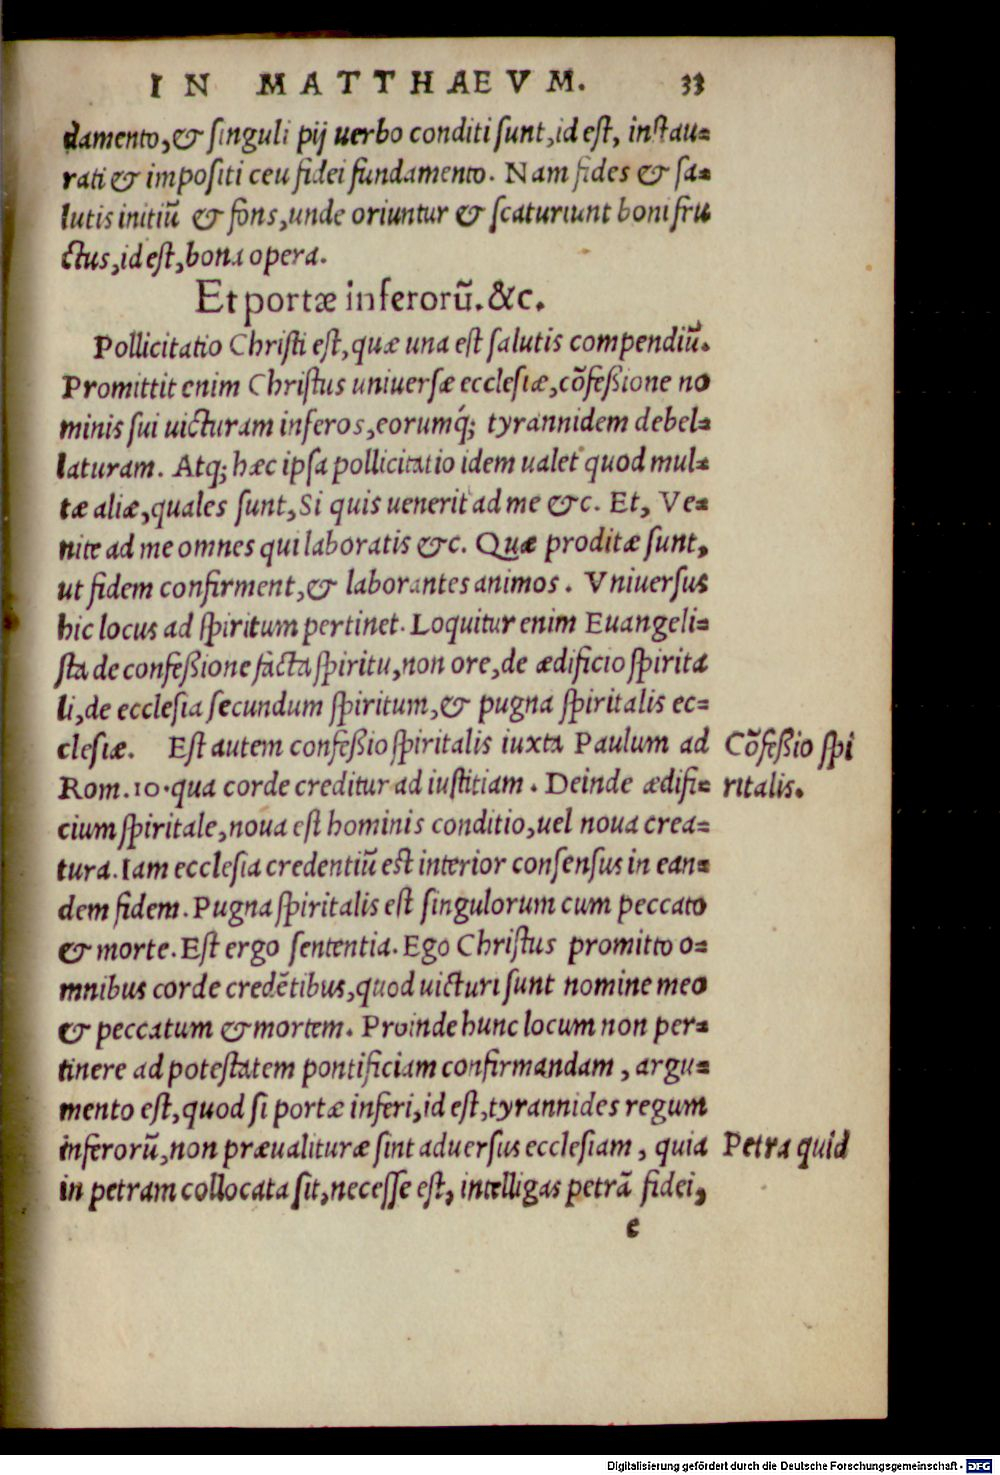 IN MATTHAEVM. 33
damento,& singuli pij uerbo conditi sunt,id est, instau=
rati & impositi ceu fidei fundamento. Nam fides & sa=
lutis initiũ & fons,unde oriuntur & scaturiunt boni fru
ctus,id est,bona opera.
Et portæ inferorũ.&c.
Pollicitatio Christi est,quæ una est salutis compendiũ.
Promittit enim Christus uniuersæ ecclesiæ,cõfeßione no
minis sui uicturam inferos,eorumq́; tyrannidem debel=
laturam. Atq; hæc ipsa pollicitatio idem ualet quod mul=
tæ aliæ,quales sunt,Si quis uenerit ad me &c. Et, Ve=
nite ad me omnes qui laboratis &c. Quæ proditæ sunt,
ut fidem confirment,& laborantes animos. Vniuersus
hic locus ad spiritum pertinet. Loquitur enim Euangeli=
sta de confeßione facta spiritu,non ore,de ædificio spirita
li,de ecclesia secundum spiritum,& pugna spiritalis ec=
clesiæ. Est autem confeßio spiritalis iuxta Paulum ad
Cõfeßio spi
Rom.10.qua corde creditur ad iustitiam. Deinde ædifi=
ritalis.
cium spiritale,noua est hominis conditio,uel noua crea=
tura.Iam ecclesia credentiũ est interior consensus in ean=
dem fidem.Pugna spiritalis est singulorum cum peccato
& morte.Est ergo sententia.Ego Christus promitto o=
mnibus corde credẽtibus,quod uicturi sunt nomine meo
& peccatum & mortem. Proinde hunc locum non per=
tinere ad potestatem pontificiam confirmandam, argu=
mento est,quod si portæ inferi,id est,tyrannides regum
inferorũ,non præualituræ sint aduersus ecclesiam, quia
Petra quid
in petram collocata sit,necesse est, intelligas petrã fidei,
e
Digitalisierung gefördert durch die Deutsche Forschungsgemeinschaft - DFG